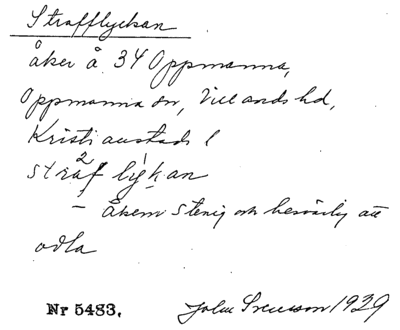 Strafflyckan
åker å 34 Oppmanna,
Oppmanna sn, Villands hd,
Kristianstads l
straf lykan
- Åkern stenig och besvärlig att
odla
Nr 5483. John Svensson 1929